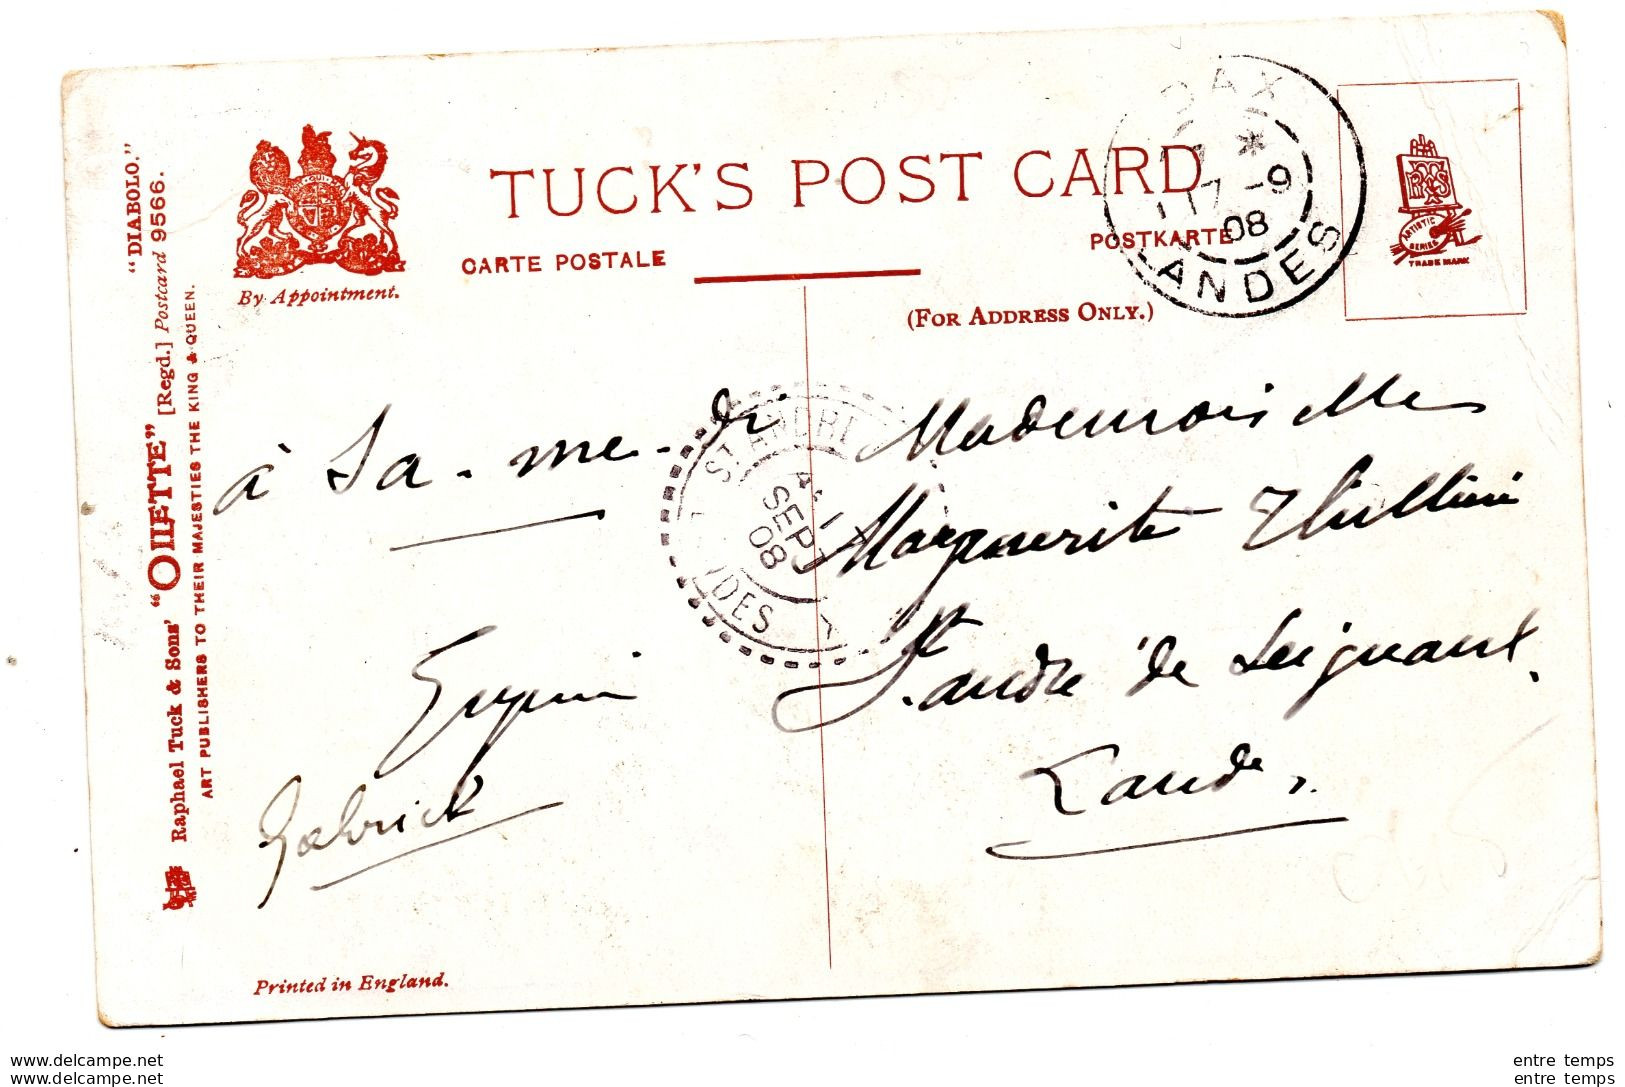 "DIABOLO."
Raphael Tuck & Sons' "OILETTE" [Regd.] Postcard 9566.
ART PUBLISHERS TO THEIR MAJESTIES THE KING & QUEEN.
By Appointment.
TUCK'S POST CARD
CARTE POSTALE
POSTKARTE
(FOR ADDRESS ONLY.)
DAX
*
17 -9
08
LANDES
R T & S
ARTISTIC
SERIES
TRADE MARK
à Sa-me-di
Gabrick
ST ANDRE
SEPT
08
Mademoiselle
Marguerite
St andré de Seignanx
Landes
Printed in England.
www.delcampe.net
www.delcampe.net
entre temps
entre temps